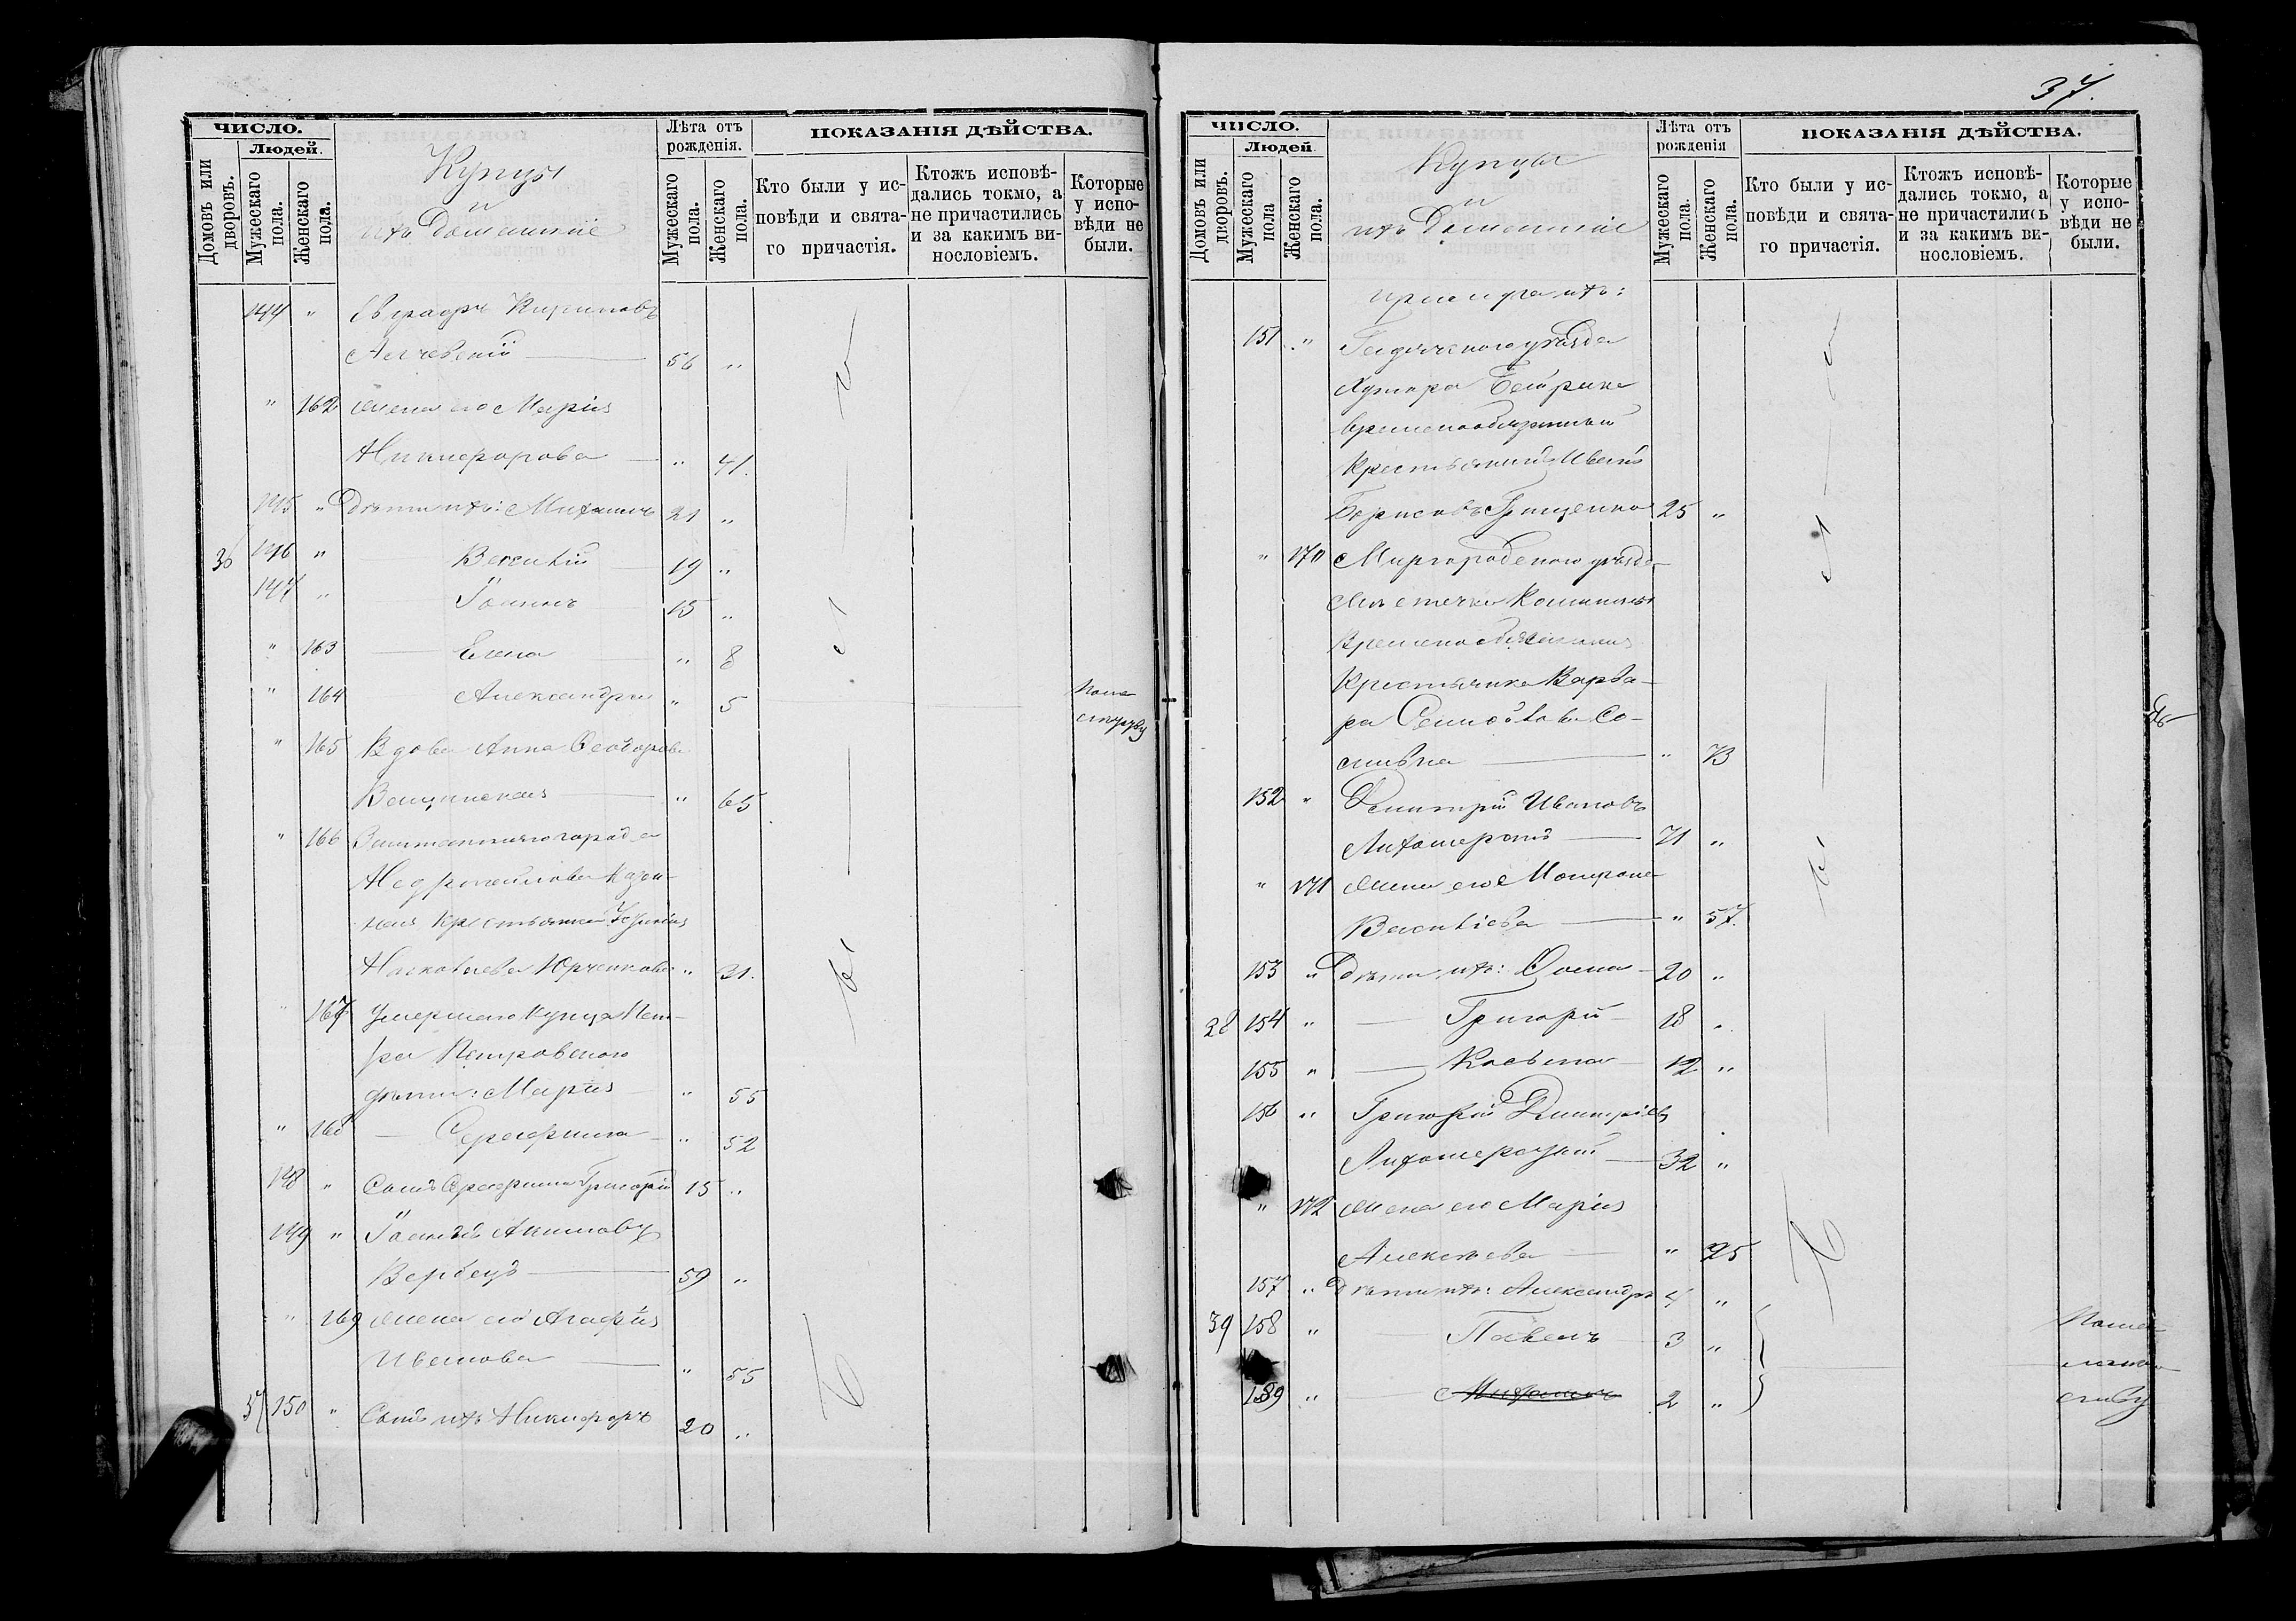 ЧИСЛО.
Людей.
Домовъ или дворовъ.
Мужескаго пола.
Женскаго пола.
Купцы
и
ихъ Домашніе
Лѣта отъ рожденія.
Мужескаго пола.
Женскаго пола.
ПОКАЗАНІЯ ДѢЙСТВА.
Кто были у ис-
повѣди и свята-
го причастія.
Ктожъ исповѣ-
дались токмо, а
не причастились
и за какимъ ви-
нословіемъ.
Которые
у испо-
вѣди не
были.
144 "
56 "
" 162 Жена его Марія
Никифорова " 41.
145 " Дѣти ихъ: Михаилъ 21 "
36 146 " Василій 19 "
147 " Іоаннъ 15 "
" 163 Елена " 8
" 164 Александра " 5
" 165 Вдова Анна Ѳеодорова
" 65
" 166 Заштатнаго города
Недригайлова Казен-
ная Крестьянка
Юрченкова " 31.
" 167 Умершаго Купца Пет-
ра Петровскаго
дѣти: Марія " 55
" 168 Серафима " 52
148 " Сынъ Серафимы Григорій 15 "
149 " Іоаннъ Акимовъ
Вербецъ 59 "
" 169 Жена его Агафія
Иванова " 55
37 150 " Сынъ ихъ Никифоръ 20 "
37.
ЧИСЛО.
Людей
Домовъ или дворовъ.
Мужескаго пола
Женскаго пола.
Купцы
и
ихъ Домашніе
Лѣта отъ рожденія
Мужескаго пола.
Женскаго пола.
ПОКАЗАНІЯ ДѢЙСТВА.
Кто были у ис-
повѣди и свята-
го причастія.
Ктожъ исповѣ-
дались токмо, а
не причастились
и за какимъ ви-
нословіемъ.
Которые
у испо-
вѣди не
были.
прислуга ихъ:
151 " Гадячскаго уѣзда
Хутора
временнообязанный
Крестьянинъ Иванъ
Борисовъ Грищенко 25 "
" 170 Миргородскаго уѣзда
Мѣстечка
Временнообязанная
Крестьянка Варва-
ра
73
152 " Димитрій Ивановъ
71 "
" 171 Жена его Матрона
Василіева " 57.
153 " Дѣти ихъ: Ѳома 20 "
38 154 " Григорій 18 "
155 " Косьма 12 "
156 " Григорій Димитріевъ
32 "
" 172 Жена его Марія
Алексѣева " 25
157 " Дѣти ихъ: Александръ 4 "
39 158 " Павелъ 3 "
159 " Михаилъ 2 "